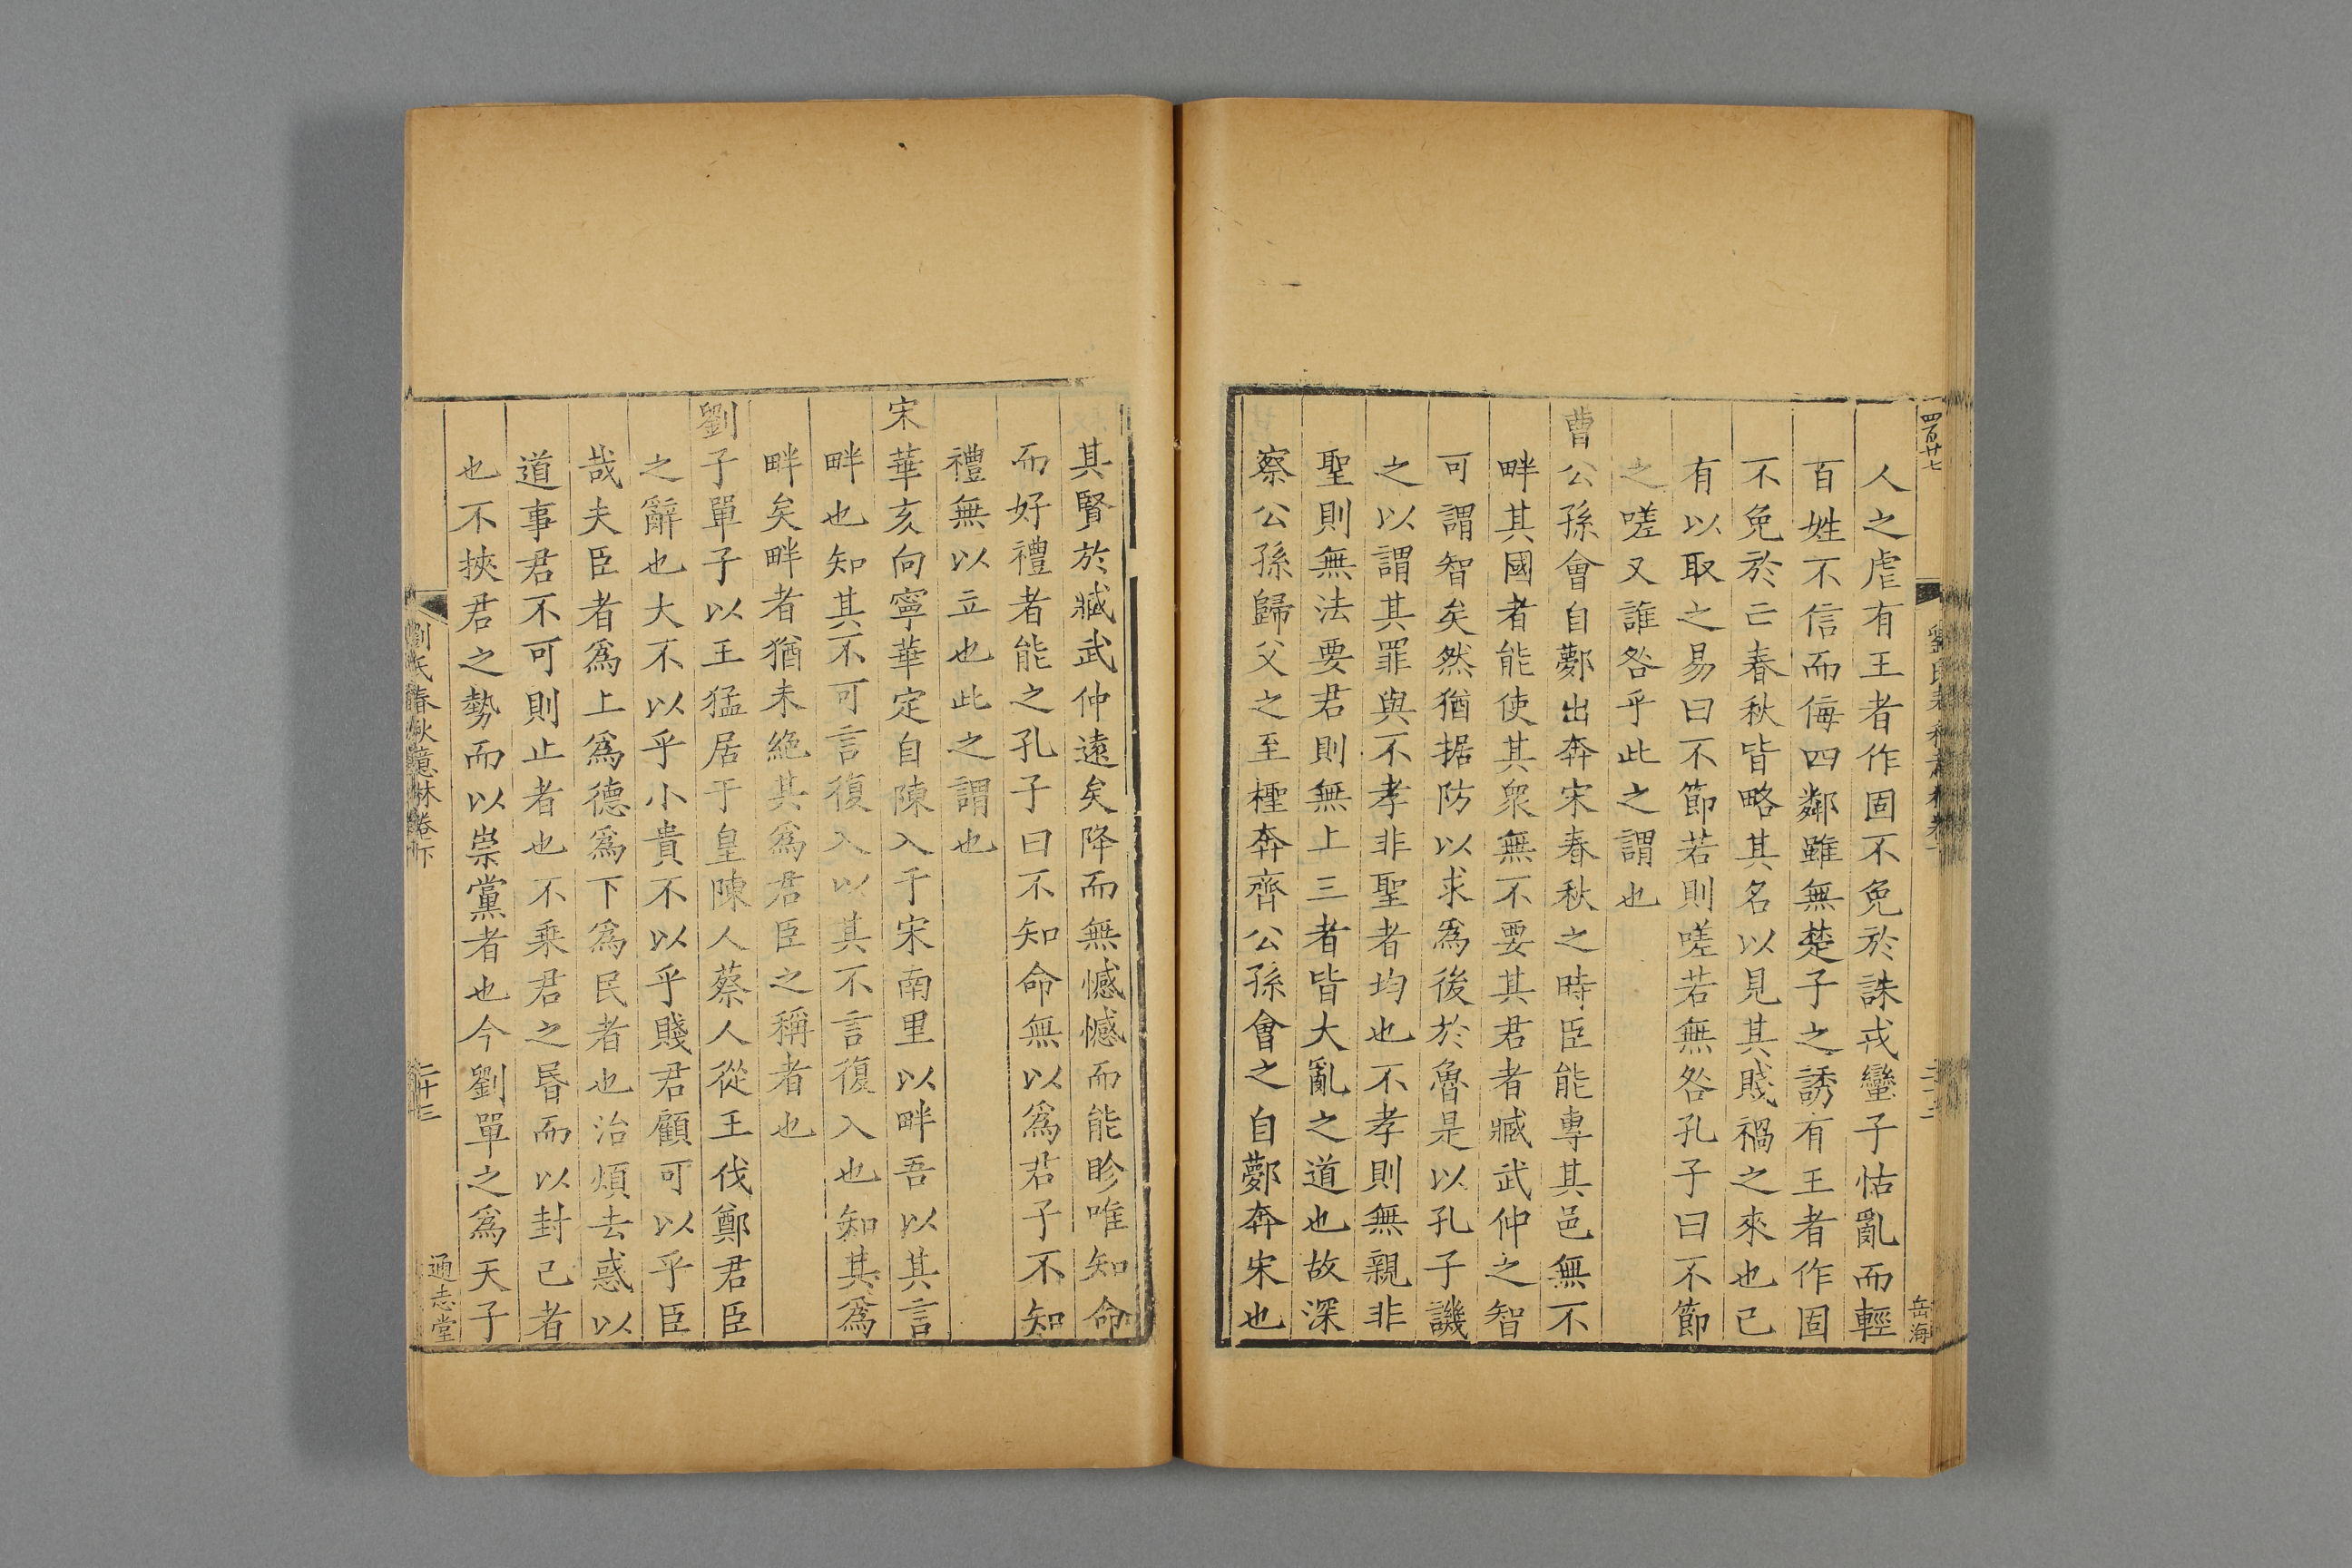 四百廿七
岳海
人之虐有王者作固不免於誅戎蠻子怙亂而輕
百姓不信而侮四鄰雖無楚子之誘有王者作固
不免於亡春秋皆略其名以見其賤禍之來也己
有以取之易曰不節若則嗟若無咎孔子曰不節
之嗟又誰咎乎此之謂也
曹公孫會自鄸出奔宋春秋之時臣能專其邑無不
畔其國者能使其衆無不要其君者臧武仲之智
可謂智矣然猶據防以求爲後於魯是以孔子譏
之以謂其罪與不孝非聖者均也不孝則無親非
聖則無法要君則無上三者皆大亂之道也故深
察公孫歸父之至檉奔齊公孫會之自鄸奔宋也
其賢於臧武仲遠矣降而無憾憾而能眕唯知命
而好禮者能之孔子曰不知命無以爲君子不知
禮無以立也此之謂也
宋華亥向寧華定自陳入于宋南里以畔吾以其言
畔也知其不可言復入以其不言復入也知其爲
畔矣畔者猶未絶其爲君臣之稱者也
劉子單子以王猛居于皇陳人蔡人從王伐鄭君臣
之辭也大不以乎小貴不以乎賤君顧可以乎臣
哉夫臣者爲上爲德爲下爲民者也治煩去惑以
道事君不可則止者也不乘君之昬而以封己者
也不挾君之勢而以崇黨者也今劉單之爲天子
劉氏春秋意林卷下
二十三
通志堂